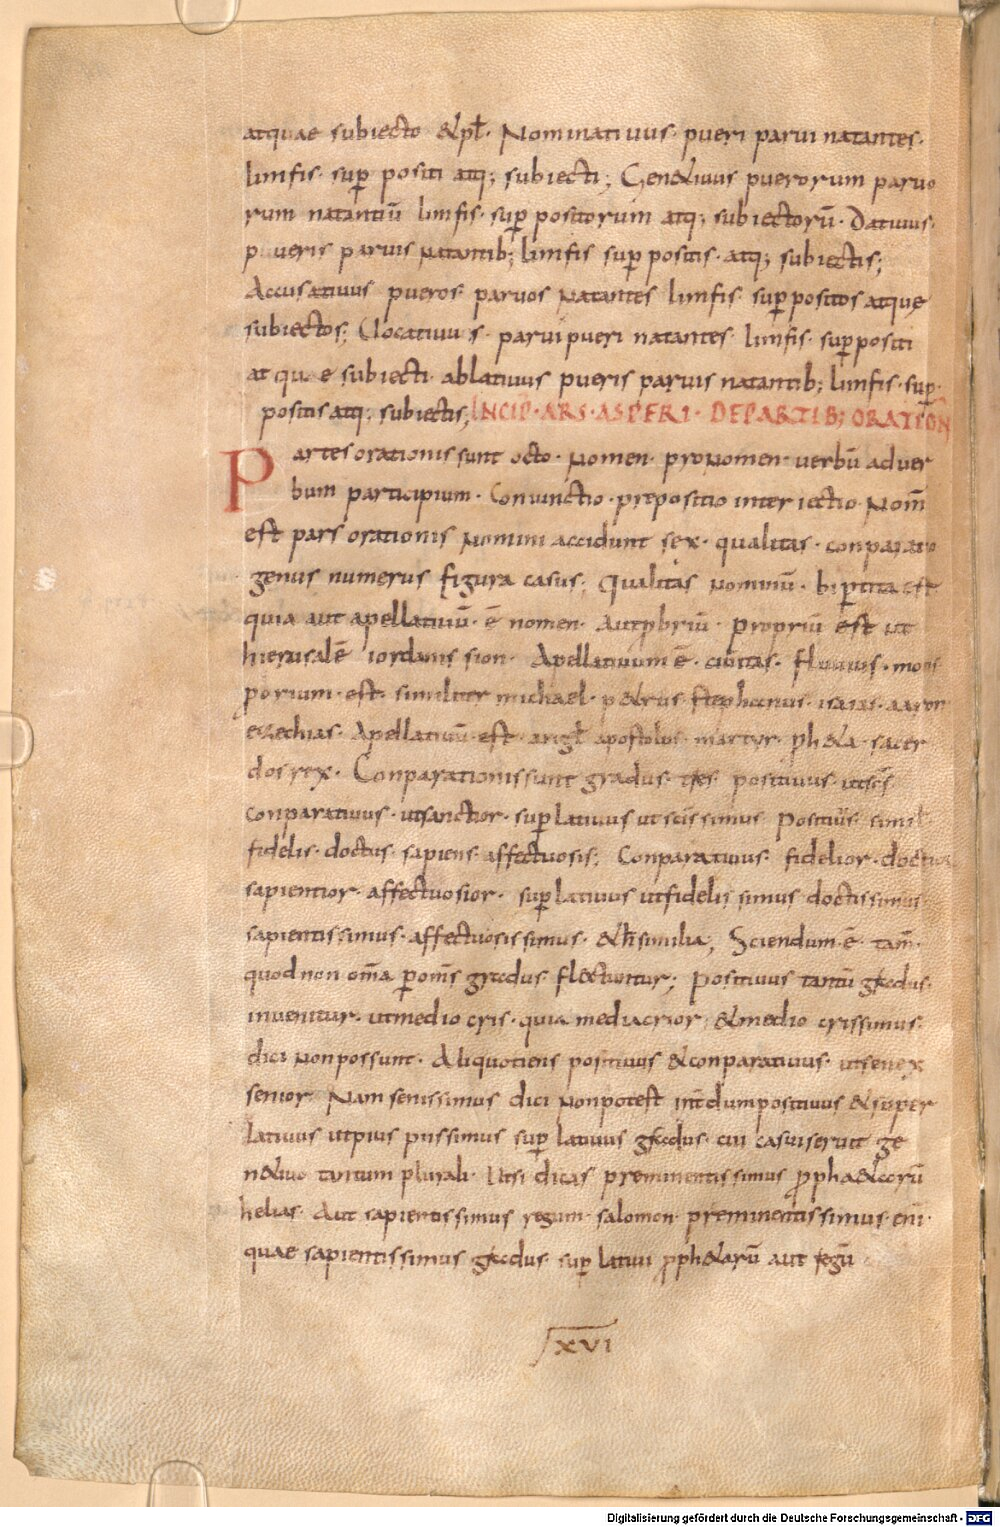 atquae subiecto & pł· Nominatiuus· pueri parui natantes·
limfis· suꝑ positi atq; subiecti; Gen&iuus puerorum paruo
rum natantiū limfis· suꝑ positorum atq; subiectorū· Datiuus·
pueris paruis natantib; limfis suꝑ positis· atq; subiectis;
Accusatiuus pueros paruos natantes limfis· suꝑpositos atque
subiectos; Uocatiuus· parui pueri natantes limfis· suꝑpositi
atquae subiecti· ablatiuus pueris paruis natantib; limfis· suꝑ·
positis atq; subiectis; INCIP̄· ARS· ASPERI· DE PARTIB; ORATION̄
Partes orationis sunt octo· Nomen· pronomen· uerbū aduer
bum participium· Coniunctio· prepositio interiectio· Nom̄
est pars orationis nomini accidunt sex· qualitas· conparatio
genus numerus figura casus; Qualitas nominū· biꝑtita est
quia aut apellatiuū· ē nomen· Aut ꝓbriū· propriū est ut
hierusalē iordanis sion· Apellatiuum ē· ciuitas· fluuius· mons
porium· est· similiter michael· p&rus stephanus· isaias· aaron
ezechias· Apellatiuū· est· angł apostolus· martyr· ph&a· sacer
dos rex· Conparationis sunt gradus· tres positiuus· ut sc̄s
conparatiuus· ut sanctior· suꝑlatiuus ut scīssimus Positiuus· simił
fidelis· doctus· sapiens affectuosis; Conparatiuus· fidelior· doctior
sapientior· affectuosior· suꝑlatiuus ut fidelissimus doctissimus
sapientissimus· affectuosissimus· & h̄ similia; Sciendum· ē· tam̄·
quod non om̄a ꝑ om̄s gradus· flectuntur; Positiuus tantū gradus·
inuenitur· ut mediocris· quia mediacrior· & mediocrissimus·
dici non possunt· Aliquotiens positiuus & conparatiuus· ut senex
senior· Nam senissimus dici non potest int̄dum positiuus & super
latiuus ut pius piissimus suꝑlatiuus gradus· cui casui seruit ge
n&iuo tantum plurali· Utsi dicas preminentissimus ꝓpha&arū
helias· Aut sapientissimus regum· salomon· preminentissimus· eni·
quae sapientissimus gradus suꝑlatiui ꝓph&arū aut regū
XVI
Digitalisierung gefördert durch die Deutsche Forschungsgemeinschaft - DFG